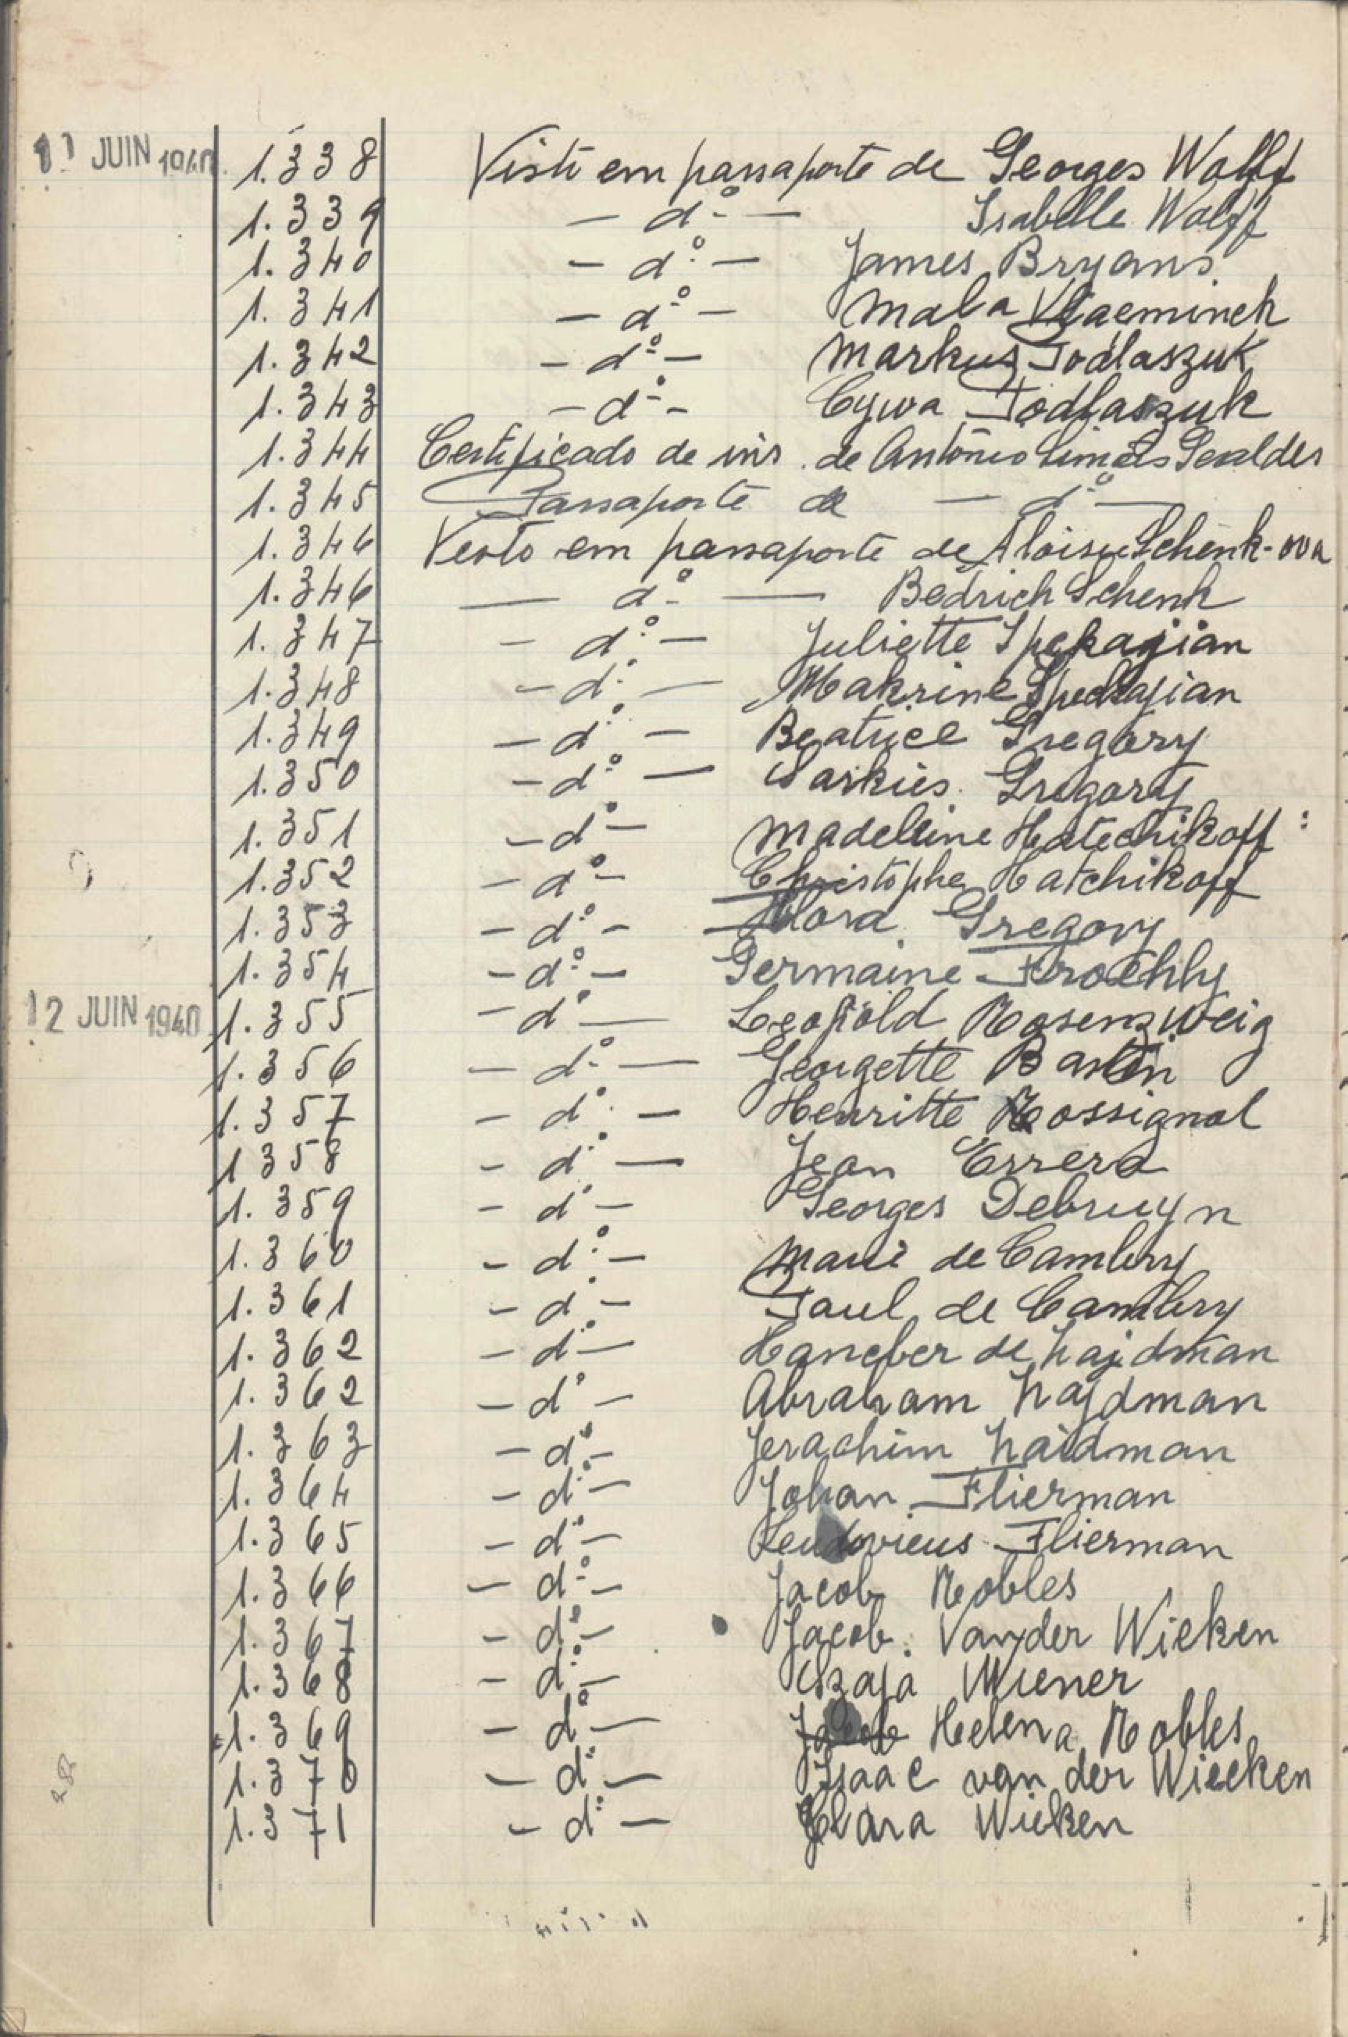 11 JUIN 1940 1.338 Visto em passaporte de Georges Wolff
1.339 — dº — Isabelle Wolff
1.340 — dº — James Bryans
1.341 — dº — Mala Vlaeminck
1.342 — dº — Markus Podlaszuk
1.343 — dº — Cywa Podlaszuk
1.344 Certificado de ins. de António Geraldes
1.345 Passaporte de — dº —
1.346 Visto em passaporte de Aloisie Schenk-ova
1.346 — dº — Bedrich Schenk
1.347 — dº — Juliette Ipekajian
1.348 — dº — Makrine Ipekajian
1.349 — dº — Beatrice Gregory
1.350 — dº — Sarkies Gregory
1.351 — dº — Madeleine Hatechikoff
1.352 — dº — Christophe Hatchikoff
1.353 — dº — Flora Gregory
1.354 — dº — Germaine Froehly
12 JUIN 1940 1.355 — dº — Leopold Rosenzweig
1.356 — dº — Georgette Bastin
1.357 — dº — Henritte Rossignol
1358 — dº — Jean Errera
1.359 — dº — Georges Debruyn
1.360 — dº — Marie de Cambry
1.361 — dº — Paul de Cambry
1.362 — dº — de Najdman
1.362 — dº — Abraham Najdman
1.363 — dº — Jerachim Naidman
1.364 — dº — Johan Flierman
1.365 — dº — Flierman
1.366 — dº — Jacob Robles
1.367 — dº — Jacob Van der Wieken
1.368 — dº — Szaja Wiener
1.369 — dº — Jacob Helena Robles
1.370 — dº — Isaac van der Wiecken
1.371 — dº — Clara Wieken